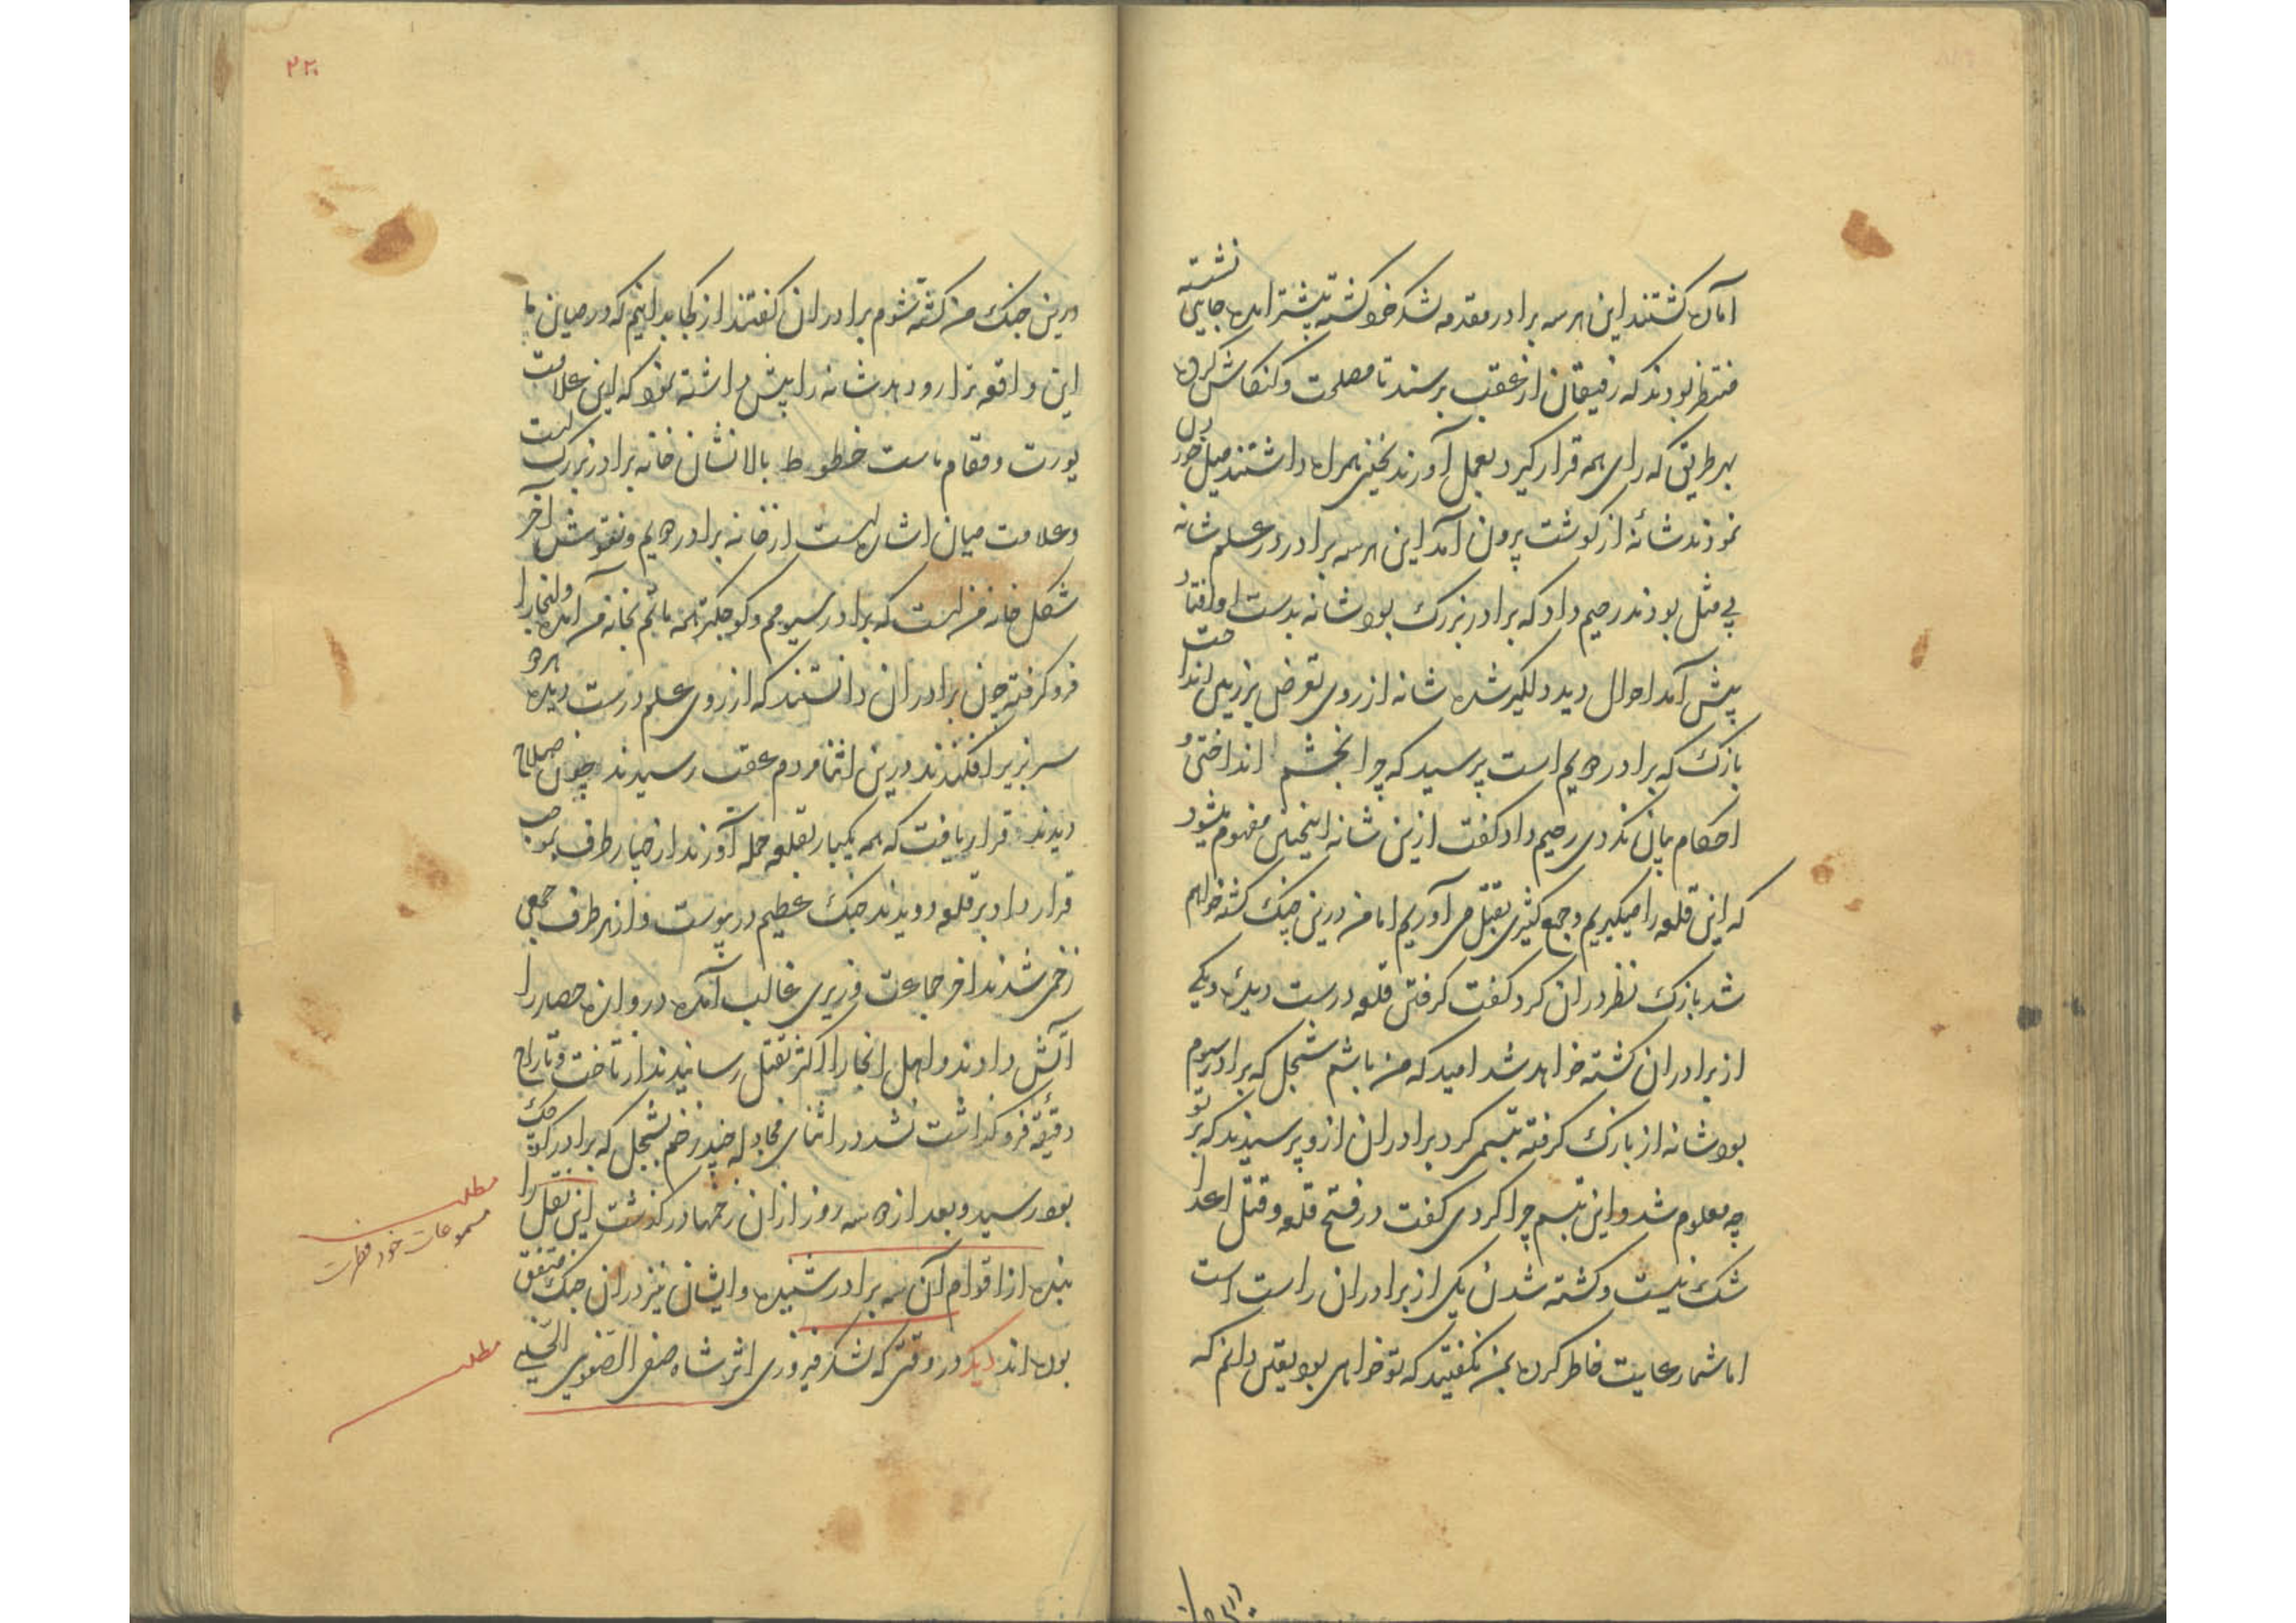 آماده گشتند این هر سه برادر مقدمه لشکر خود گشته پیشتر آمده جایی نشسته
منتظر بودند که رفیقان از عقب برسند تا مصلحت و کنکاش کرده
بهر طریق که رای همه قرار گیرد بعمل آورند یخنی همراه داشتند میل خوردن
نمودند شانهٔ از گوشت برون آمد این هر سه برادر در علم شانه
بی مثل بودند رحیم داد که برادر بزرگ بود شانه بدست او افتاد
پیش آمد احوال دید دلگیر شده شانه از روی تعرض بر زمین انداخت
بازک که برادر دویم است پرسید که چرا بخشم انداختی و
احکام بیان نکردی رحیم داد گفت ازین شانه اینچنین مفهوم میشود
که این قلعه را میگیریم و جمع کثیری بقتل می آوریم اما من درین جنک کشته خواهم
شد بازک نظر در آن کرد گفت گرفتن قلعه درست دیدهٔ و یکی
از برادران کشته خواهد شد امید که من باشم شجل که برادر سیوم
بود شانه از بازک گرفته تبسم کرد برادران ازو پرسیدند که بر تو
چه معلوم شد و این تبسم چرا کردی گفت در فتح قلعه و قتل اعدا
شک نیست و کشته شدن یکی از برادران راست است
اما شما رعایت خاطر کرده بمن نگفتید که تو خواهی بود یقین دانم که
۲۲۰
درین جنک من کشته شوم برادران گفتند از کجا بدانیم که در میان ما
این واقعه ترا رو دهد شانه را پیش داشته نمود که این علامت
یورت و مقام ماست خطوط بالا نشان خانه برادر بزرگ است
و علامت میان اشاره است از خانه برادر دویم و نقوش آخر
شکل خانه من است که برادر سیومم و کوچکتر همه مائیم بخانه من آمده و آنجا را
فرو گرفته چون برادران دانستند که از روی علم درست دیده هر دو
سر بزیر افکندند درین اثنا مردم عقب رسیدند چون صلاح
دیدند قرار یافت که همه یکبار بقلعه حمله آورند از چهار طرف بموجب
قرار داد بر قلعه دویدند جنک عظیم در پیوست و از هر طرف جمعی
زخمی شدند آخر جماعت وزیری غالب آمده دروازه حصار را
آتش دادند و اهل آنجا را اکثر بقتل رسانیدند از تاخت و تاراج
دقیقهٔ فرو گذاشت نشد در اثنای مجادله چند زخم بشجل که برادر کوچک
بود رسید و بعد از دو سه روز از آن زخمها در گذشت این نقل را
بنده از اقوام آن سه برادر شنیده و ایشان نیز در آن جنک متفق
بوده اند دیگر در وقتی که لشکر فیروزی اثر شاه صفی الصفوی الحسینی
مطلب
مسموعات خود
مطلب